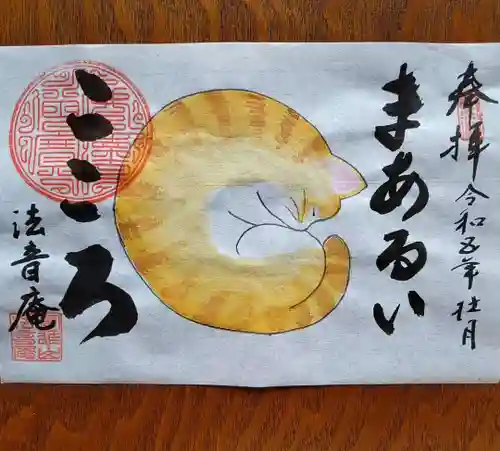 奉拝 令和五年 壮月
まあるい
こころ
法音庵